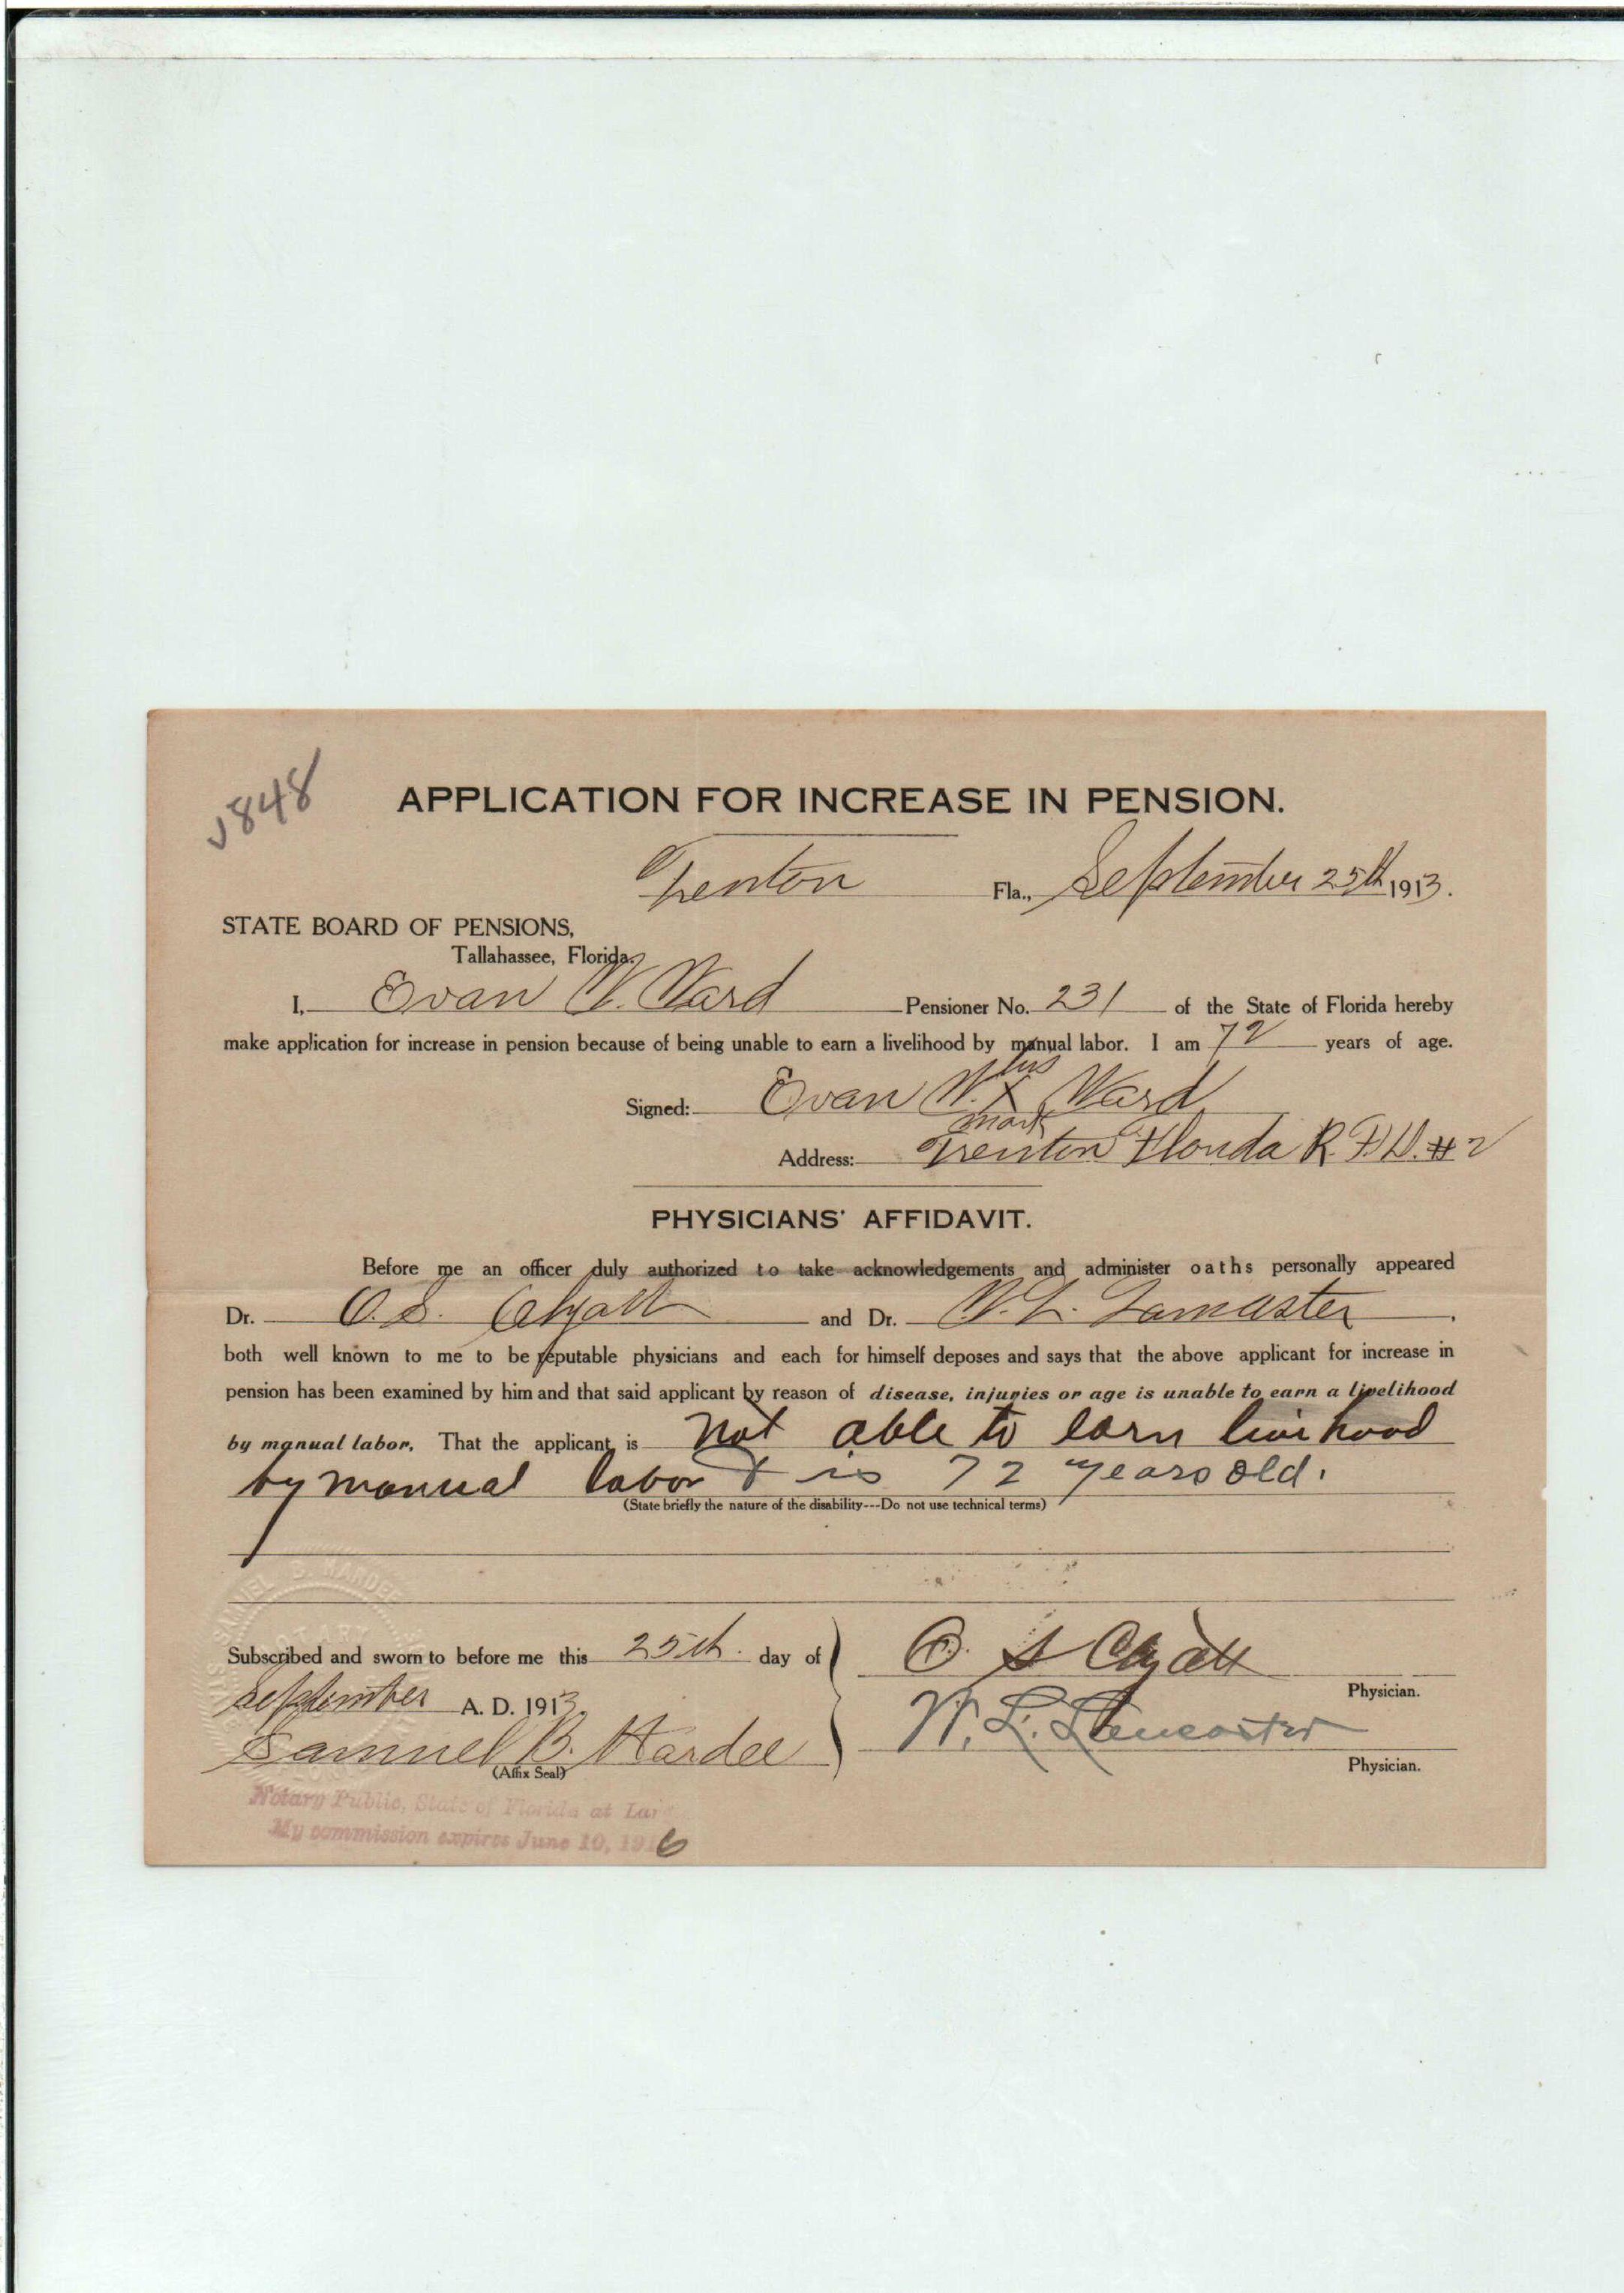 √848
APPLICATION FOR INCREASE IN PENSION.
Trenton Fla., September 25th 1913.
STATE BOARD OF PENSIONS,
Tallahassee, Florida.
I, Evan W. Ward Pensioner No. 231 of the State of Florida hereby
make application for increase in pension because of being unable to earn a livelihood by manual labor. I am 72 years of age.
his
Signed: Evan W. X Ward
mark
Address: Trenton Florida R.F.D. #2
PHYSICIANS' AFFIDAVIT.
Before me an officer duly authorized to take acknowledgements and administer oaths personally appeared
Dr. O.S. Clyatt and Dr. W.L. Lamaster.
both well known to me to be reputable physicians and each for himself deposes and says that the above applicant for increase in
pension has been examined by him and that said applicant by reason of disease, injuries or age is unable to earn a livelihood
by manual labor. That the applicant is not able to earn livihood
by manual labor & is 72 years old.
(State briefly the nature of the disability---Do not use technical terms)
SAMUEL B. HARDEE
NOTARY
Subscribed and sworn to before me this 25th. day of
September A. D. 1913
Samuel B. Hardee
(Affix Seal)
O. S Clyatt
Physician.
W. L. Lancaster
Physician.
Notary Public, State of Florida at Lar
My commission expires June 10, 1916